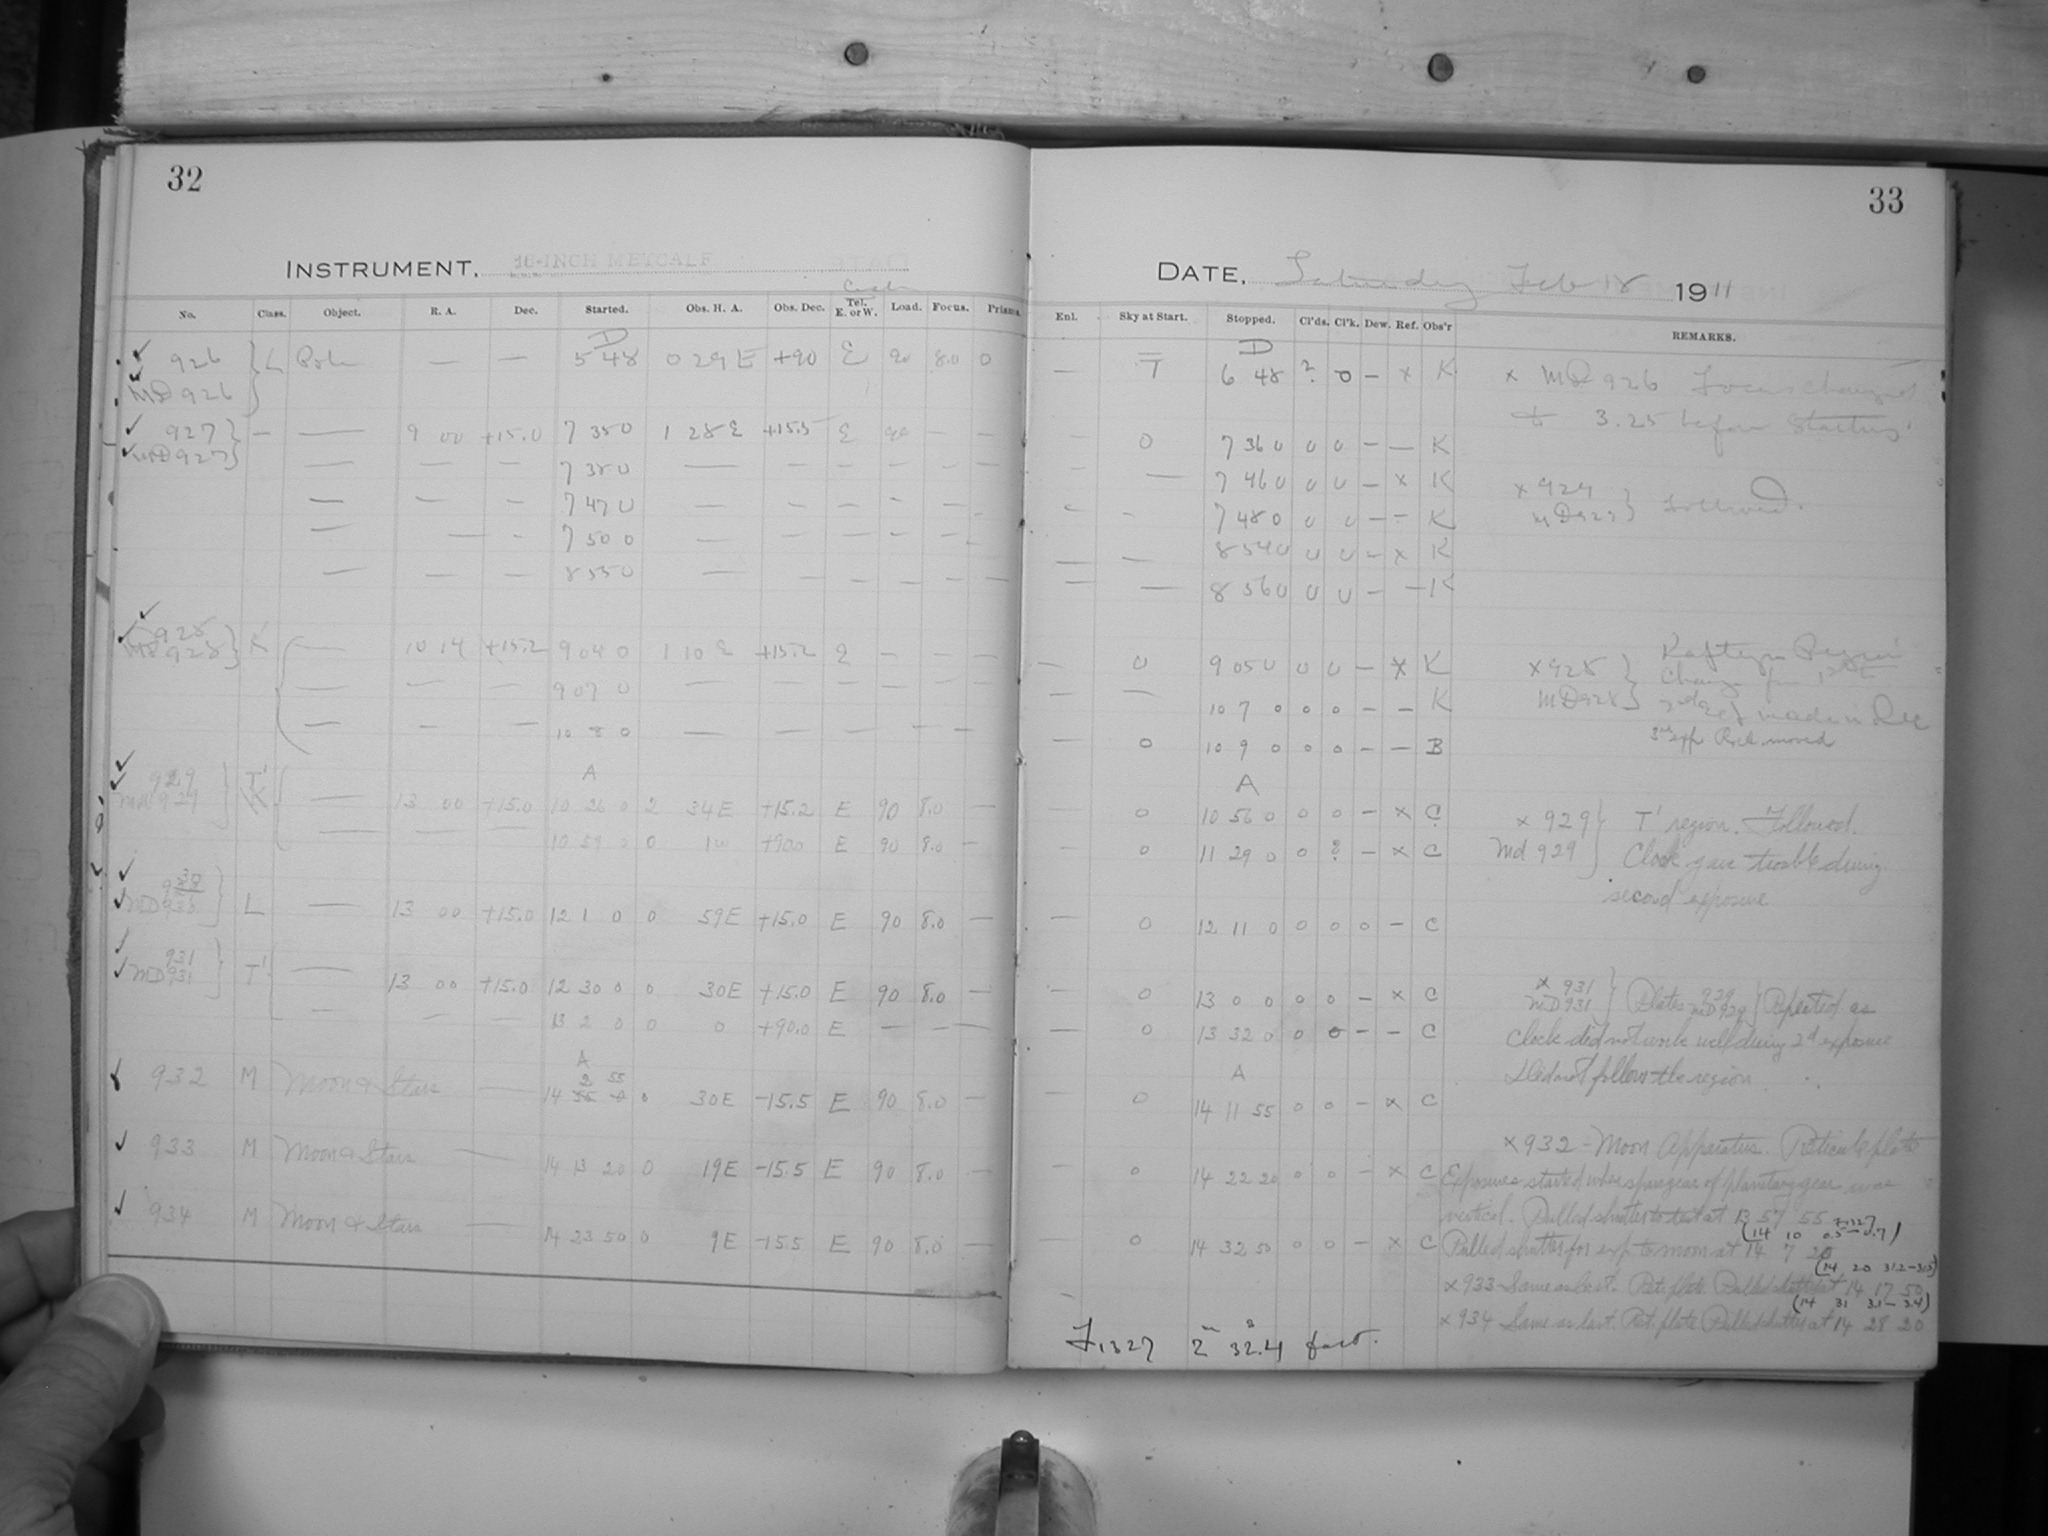 32
INSTRUMENT, 16-INCH METCALF
No. Class. Object. R. A. Dec. Started. Obs. H. A. Obs. Dec. Tel. E. or W. Load. Focus. Prisms.
D
926 L Pole — — 5 48 0 29 E +90 E 90 8.0 0
MD 926
927 — — 9 00 +15.0 7 35 0 1 28 E +15.5 E 90 — —
MD 927
— — — 7 38 0 — — — — — —
— — — 7 47 0 — — — — — —
— — — 7 50 0 — — — — — —
— — — 8 55 0 — — — — — —
928 K — 10 14 +15.2 9 04 0 1 10 E +15.2 E — — —
MD 928
— — — 9 07 0 — — — — — —
— — — 10 8 0 — — — — — —
A
929 T'
MD 929 K — 13 00 +15.0 10 26 0 2 34 E +15.2 E 90 8.0 —
— — — 10 59 0 0 1W +90.0 E 90 8.0 —
930
MD 930 L — 13 00 +15.0 12 1 0 0 59E +15.0 E 90 8.0 —
931
MD 931 T' — 13 00 +15.0 12 30 0 0 30E +15.0 E 90 8.0 —
— — — 13 2 0 0 0 +90.0 E — — —
A
2 55
932 M Moon & Stars — 14 55 0 0 30E -15.5 E 90 8.0 —
933 M Moon & Stars — 14 13 20 0 19E -15.5 E 90 8.0 —
934 M Moon & Stars — 14 23 50 0 9E -15.5 E 90 8.0 —
33
DATE, Saturday Feb 18 1911
Enl. Sky at Start. Stopped. Cl'ds. Cl'k. Dew. Ref. Obs'r REMARKS.
D
— T 6 48 ? 0 — x K x MD 926 Focus changed
to 3.25 before starting
— 0 7 36 0 0 0 — — K
— — 7 46 0 0 0 — x K x 927
MD 927 } Followed.
— — 7 48 0 0 0 — — K
— — 8 54 0 0 0 — x K
— — 8 56 0 0 0 — — K
— 0 9 05 0 0 0 — x K x 928
MD 928 } Kapteyn Region
Change for 1st &
2nd exp made in Dec
— — 10 7 0 0 0 — — K
3rd exp made in
— 0 10 9 0 0 0 — — B
A
— 0 10 56 0 0 0 — x C x 929 } T' region. Followed.
— 0 11 29 0 0 ? — x C Md 929 Clock gave trouble during
second exposure
— 0 12 11 0 0 0 0 — C
— 0 13 0 0 0 0 — x C x 931
MD 931 } Plates 929
MD 929 } Repeated as
— 0 13 32 0 0 0 — — C Clock did not work well during 2d exposure
Did not follow the region.
A
— 0 14 11 55 0 0 — x C
x 932 - Moon Apparatus. Reticule plate
— 0 14 22 20 0 0 — x C Exposures started when of planetary gear was
vertical. Pulled shutter at 13 57 55
(14 10 0.5-0.7)
— 0 14 32 50 0 0 — x C Pulled shutter for exp to moon at 14 7 20
(14 20 31.2-31.5)
x 933 - Same as last. Ret. plate Pulled shutter at 14 17 50
(14 31 3.1-3.4)
x 934 Same as last. Ret. plate Pulled shutter at 14 28 20
F1327 2m 32.4s fast.